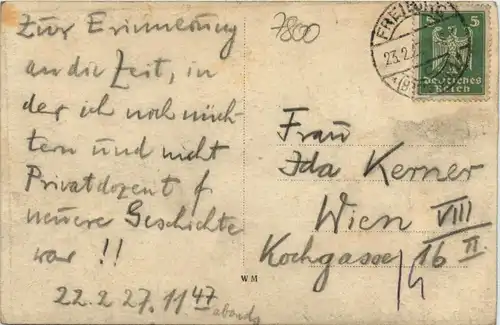 Zur Erinnerung
an die Zeit, in
der ich noch nüch-
tern und nicht
Privatdozent f
neuere Geschichte
war !!
22.2 27. 11 47
abends
7800
FREIBURG
23.2.
5
Deutsches
Reich
Frau
Ida Kerner
Wien VIII
Kochgasse 16 II.
W M